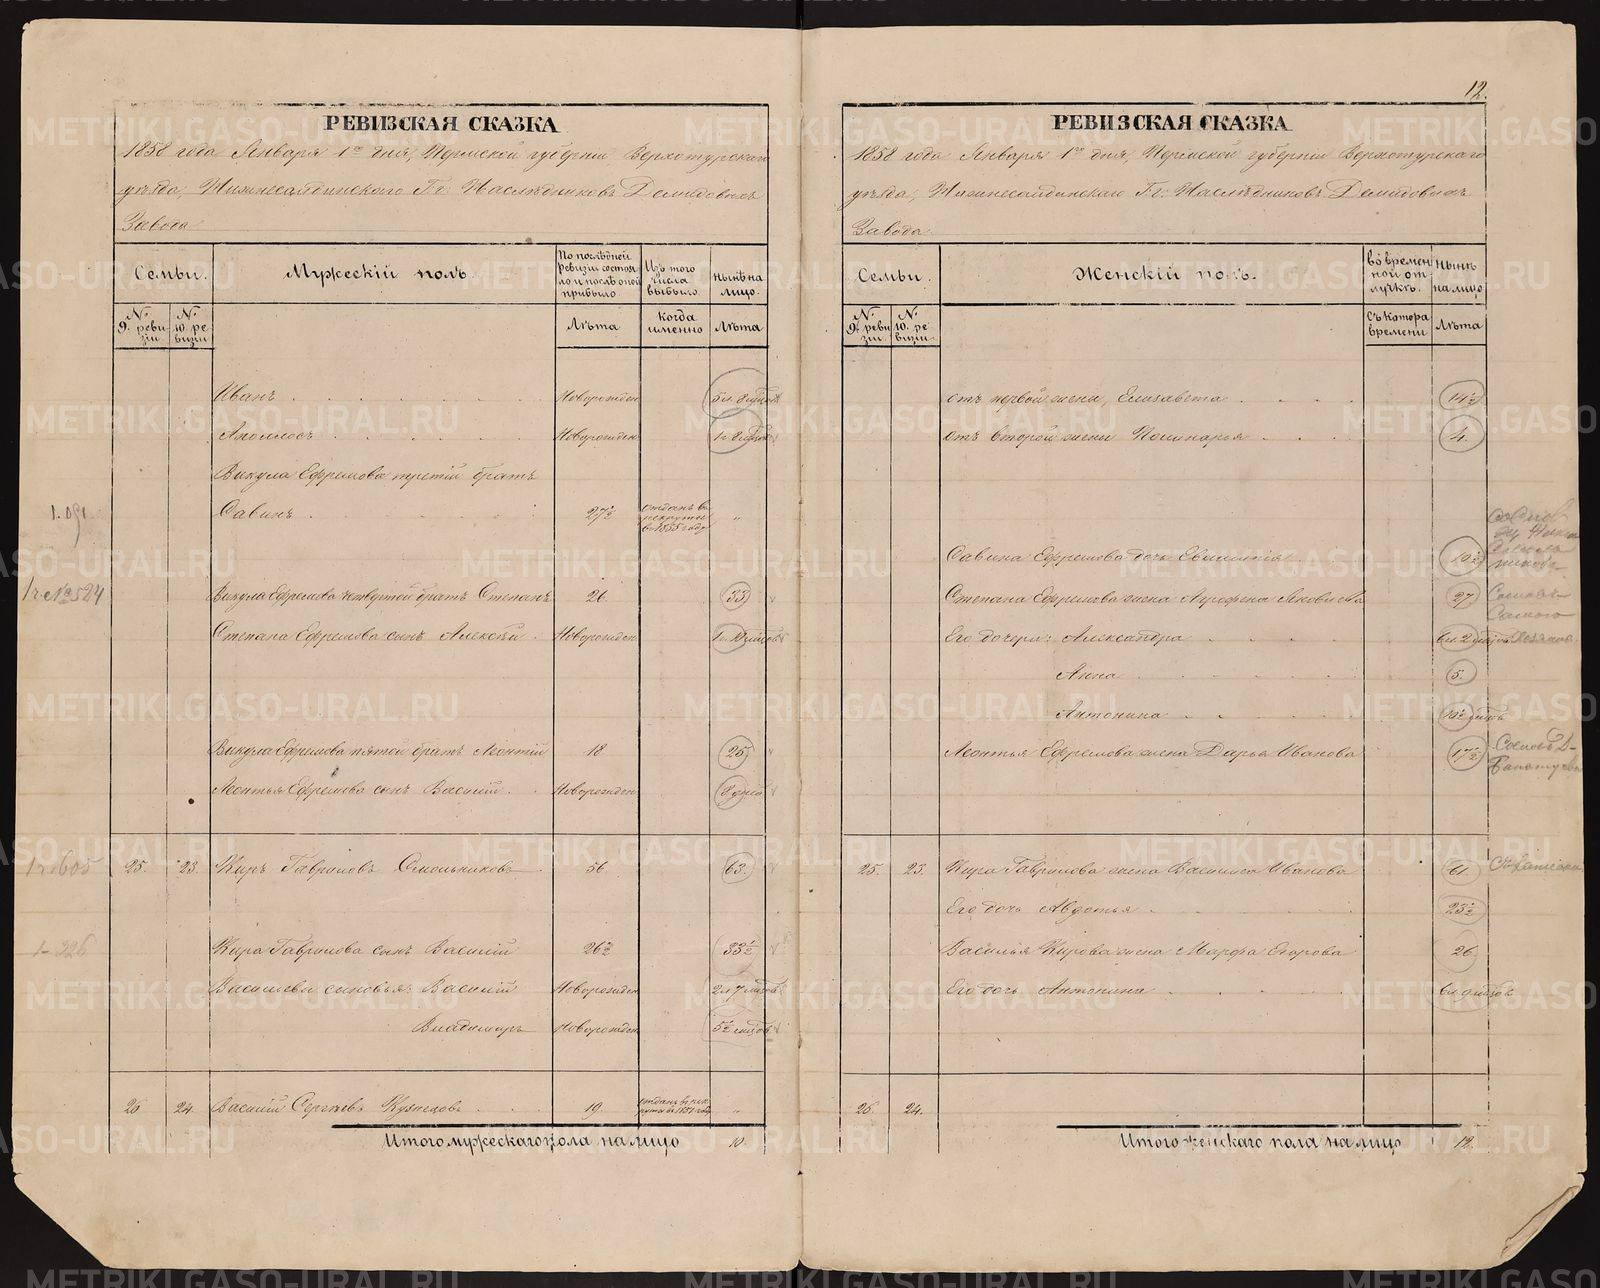 РЕВИЗСКАЯ СКАЗКА
1858 года Января 1го дня, Пермской губернии Верхотурского
уѣзда, Нижнесалдинского Гг. Наслѣдниковъ Демидовыхъ
Завода
Семьи.
Мужескій полъ.
По послѣдней
ревизіи состоя-
ло и послѣ оной
прибыло.
Изъ того
числа
выбыло.
нынѣ на
лицо.
№ 9. реви-
зіи
№ 10. ре-
визіи
Лѣта
когда
именно
Лѣта
Иванъ Новорожден
Аполлосъ Новорожден
Викула Ефремова третій братъ
Савинъ 27½ отданъ въ рекруты въ 1855 году „
1ч №524 Викула Ефремова четвертой братъ Степанъ 26 33
Степана Ефремова сынъ Алексѣй Новорожден
Викула Ефремова пятой братъ Леонтій 18 25
Леонтья Ефремова сынъ Василій Новорожден
25. 23. Киръ Гавриловъ Смольниковъ 56 63.
Кира Гаврилова сынъ Василій 26½ 33½
Васильевы сыновья: Василій Новорожден
Владимиръ Новорожден
26 24. Василій Сергѣевъ Кузнецовъ 19. „
Итого мужескаго пола на лицо 10.
12.
РЕВИЗСКАЯ СКАЗКА
1858 года Января 1го дня, Пермской губернии Верхотурского
уѣзда, Нижнесалдинскаго Гг. Наслѣдниковъ Демидовыхъ
Завода.
Семьи.
Женскій полъ.
во времен-
ной от-
лучкѣ.
Нынѣ
на лицо
№ 9. реви-
зіи
№ 10. ре-
визіи
Съ котора
времени
Лѣта
отъ первой жены, Елизавета 14½
отъ второй жены 4.
Савина Ефремова дочь 10½
Степана Ефремова жена Агрофена Яковлева 27
Его дочери: Александра
Анна 5.
Антонина
Леонтья Ефремова жена Дарья Иванова 17½
25. 23. Кира Гаврилова жена Василиса Иванова 61.
Его дочь Авдотья 23½
Василья Кирова жена Марфа Егорова 26
Его дочь Антонина
26 24.
Итого женскаго пола на лицо 12.
METRIKI.GASO-URAL.RU